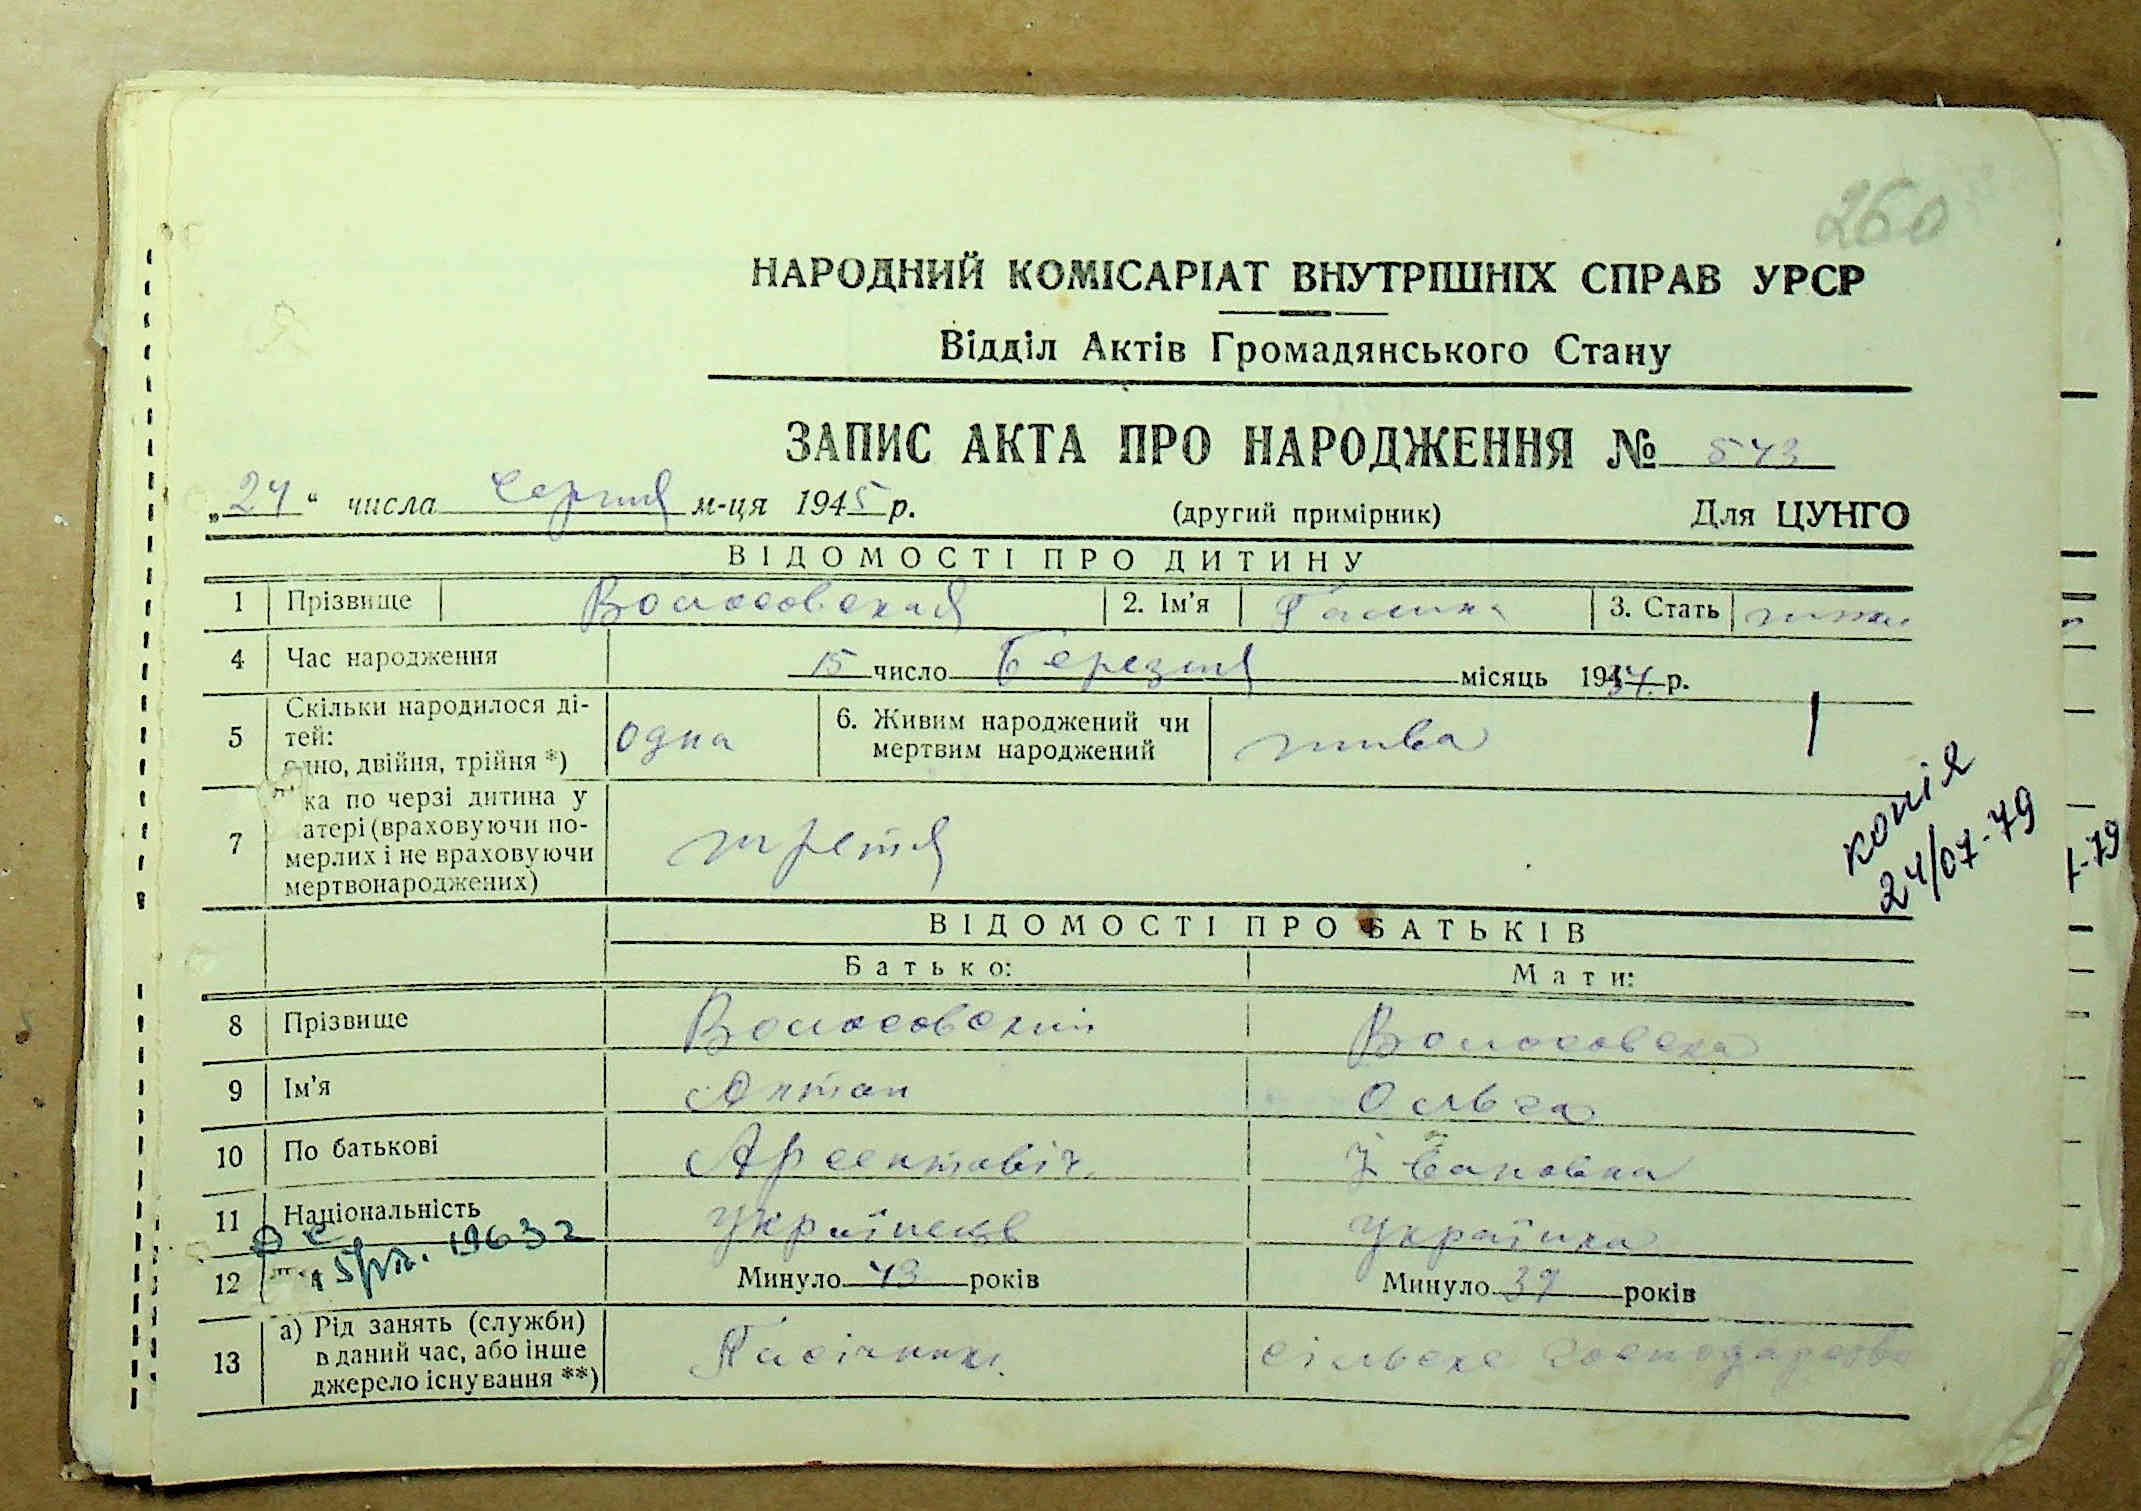 260
НАРОДНИЙ КОМІСАРІАТ ВНУТРІШНІХ СПРАВ УРСР
Відділ Актів Громадянського Стану
ЗАПИС АКТА ПРО НАРОДЖЕННЯ № 543
„24“ числа Серпня м-ця 1945 р. (другий примірник) Для ЦУНГО
ВІДОМОСТІ ПРО ДИТИНУ
1 Прізвище Волосовская 2. Ім'я Галина 3. Стать
4 Час народження 15 число Березня місяць 1934 р.
5 Скільки народилося ді-
тей:
одно, двійня, трійня *) одна 6. Живим народжений чи
мертвим народжений жива
7 ка по черзі дитина у
атері (враховуючи по-
мерлих і не враховуючи
мертвонароджених) третя
копія
24/07-79
ВІДОМОСТІ ПРО БАТЬКІВ
Батько: Мати:
8 Прізвище Волосовский Волосовска
9 Ім'я Антон Ольга
10 По батькові Арсентовіч
11 Національність Українець Українка
1963
12 Минуло 43 років Минуло 39 років
13 а) Рід занять (служби)
в даний час, або інше
джерело існування **) Пасічник сільске господарство
-79